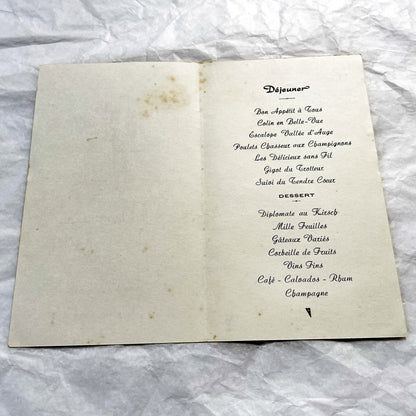 Déjeuner
Bon Appétit à Tous
Colin en Belle-Vue
Escalope Vallée d'Auge
Poulets Chasseur aux Champignons
Les Délicieux sans Fil
Gigot du Trotteur
Suivi du Tendre Cœur
DESSERT
Diplomate au Kirsch
Mille Feuilles
Gâteaux Variés
Corbeille de Fruits
Vins Fins
Café - Calvados - Rhum
Champagne